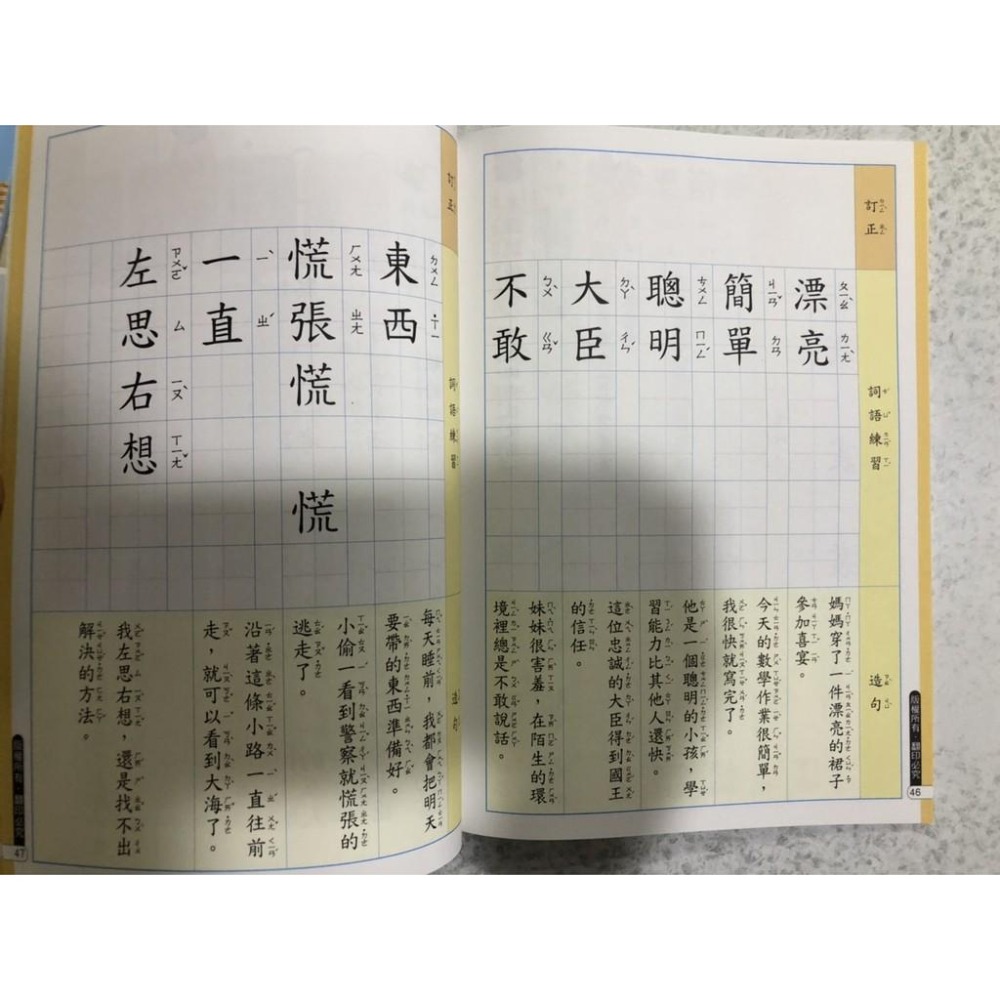 訂正
詞語練習
造句
漂亮
媽媽穿了一件漂亮的裙子
參加喜宴。
簡單
今天的數學作業很簡單，
我很快就寫完了。
聰明
他是一個聰明的小孩，學
習能力比其他人還快。
大臣
這位忠誠的大臣得到國王
的信任。
不敢
妹妹很害羞，在陌生的環
境裡總是不敢說話。
版權所有．翻印必究
46
訂正
詞語練習
造句
東西
每天睡前，我都會把明天
要帶的東西準備好。
慌張慌
慌
小偷一看到警察就慌張的
逃走了。
一直
沿著這條小路一直往前
走，就可以看到大海了。
左思右想
我左思右想，還是找不出
解決的方法。
47